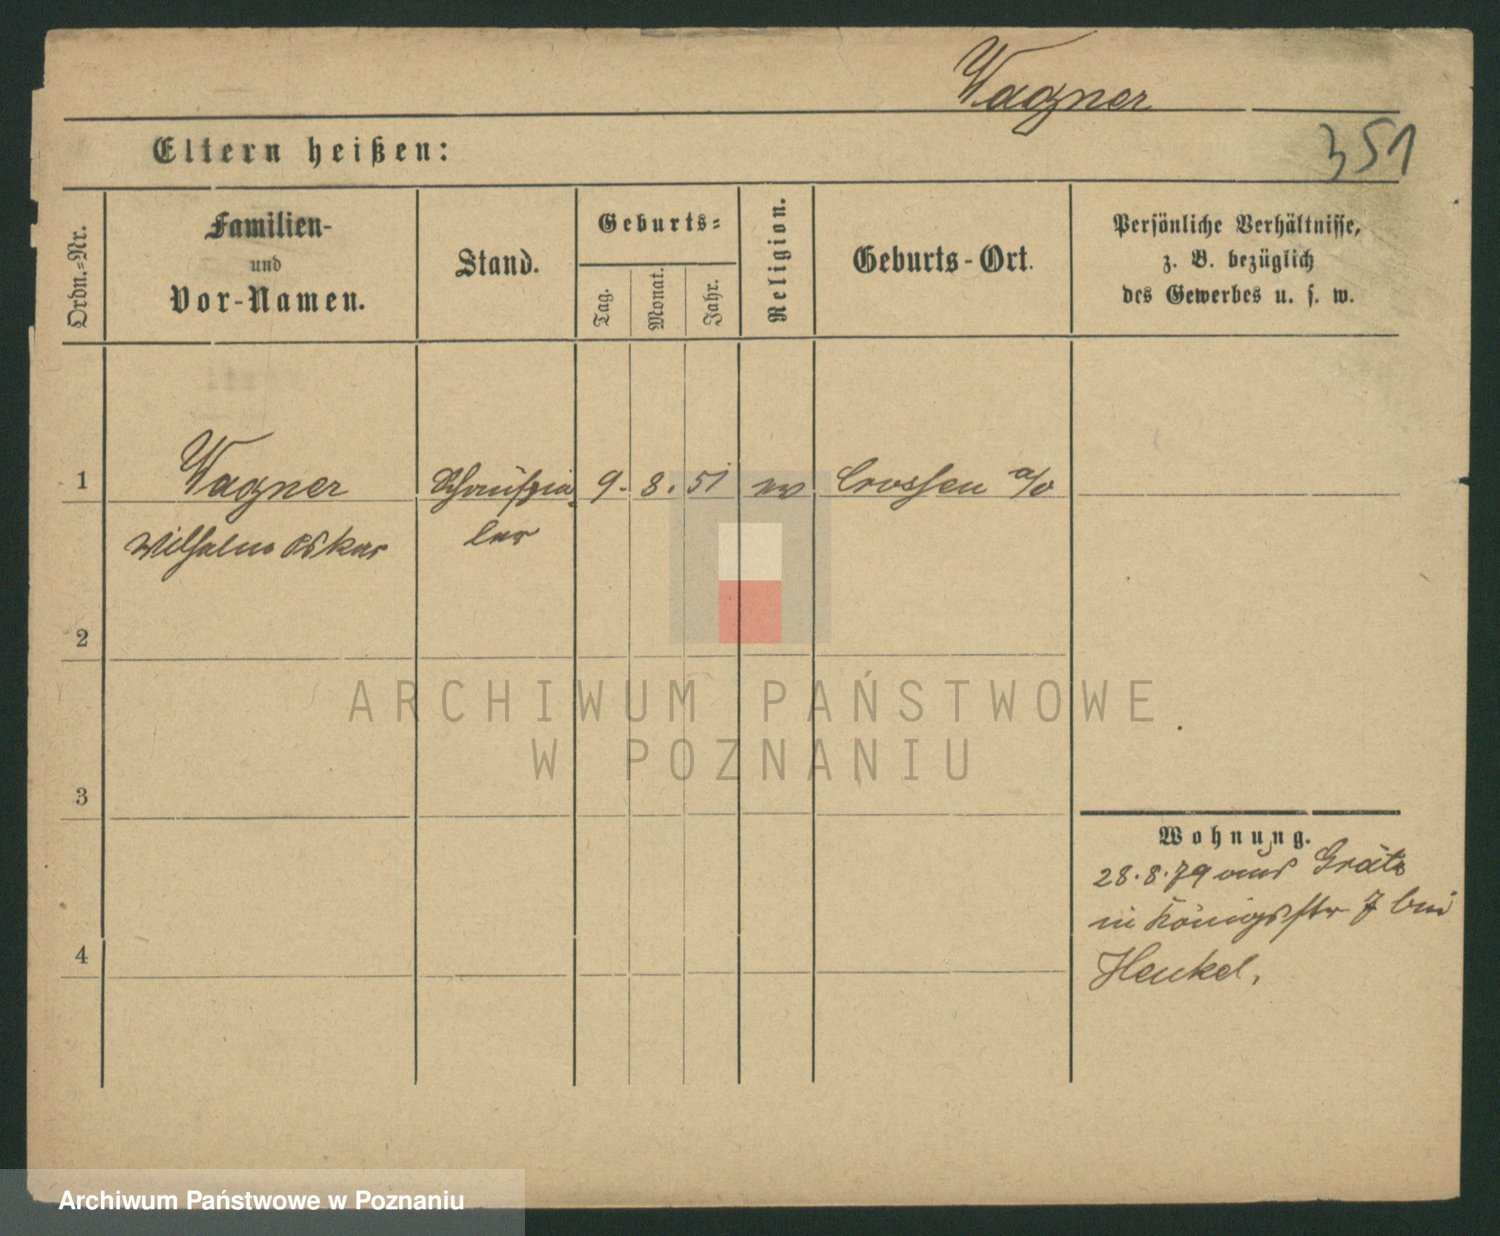 Wagner
351
Eltern heißen:
Ordn.=Nr.
Familien-
und
Vor-Namen.
Stand.
Geburts=
Tag.
Monat.
Jahr.
Religion.
Geburts-Ort.
Persönliche Verhältnisse,
z. B. bezüglich
des Gewerbes u. s. w.
1
Wagner
Wilhelm Oskar
Schauspie
ler
9.
8.
51
ev
Crossen a/O
2
3
4
Wohnung.
28.8.79 aus Grätz
in Königsstr 7 bei
Henkel.
ARCHIWUM PAŃSTWOWE
W POZNANIU
Archiwum Państwowe w Poznaniu